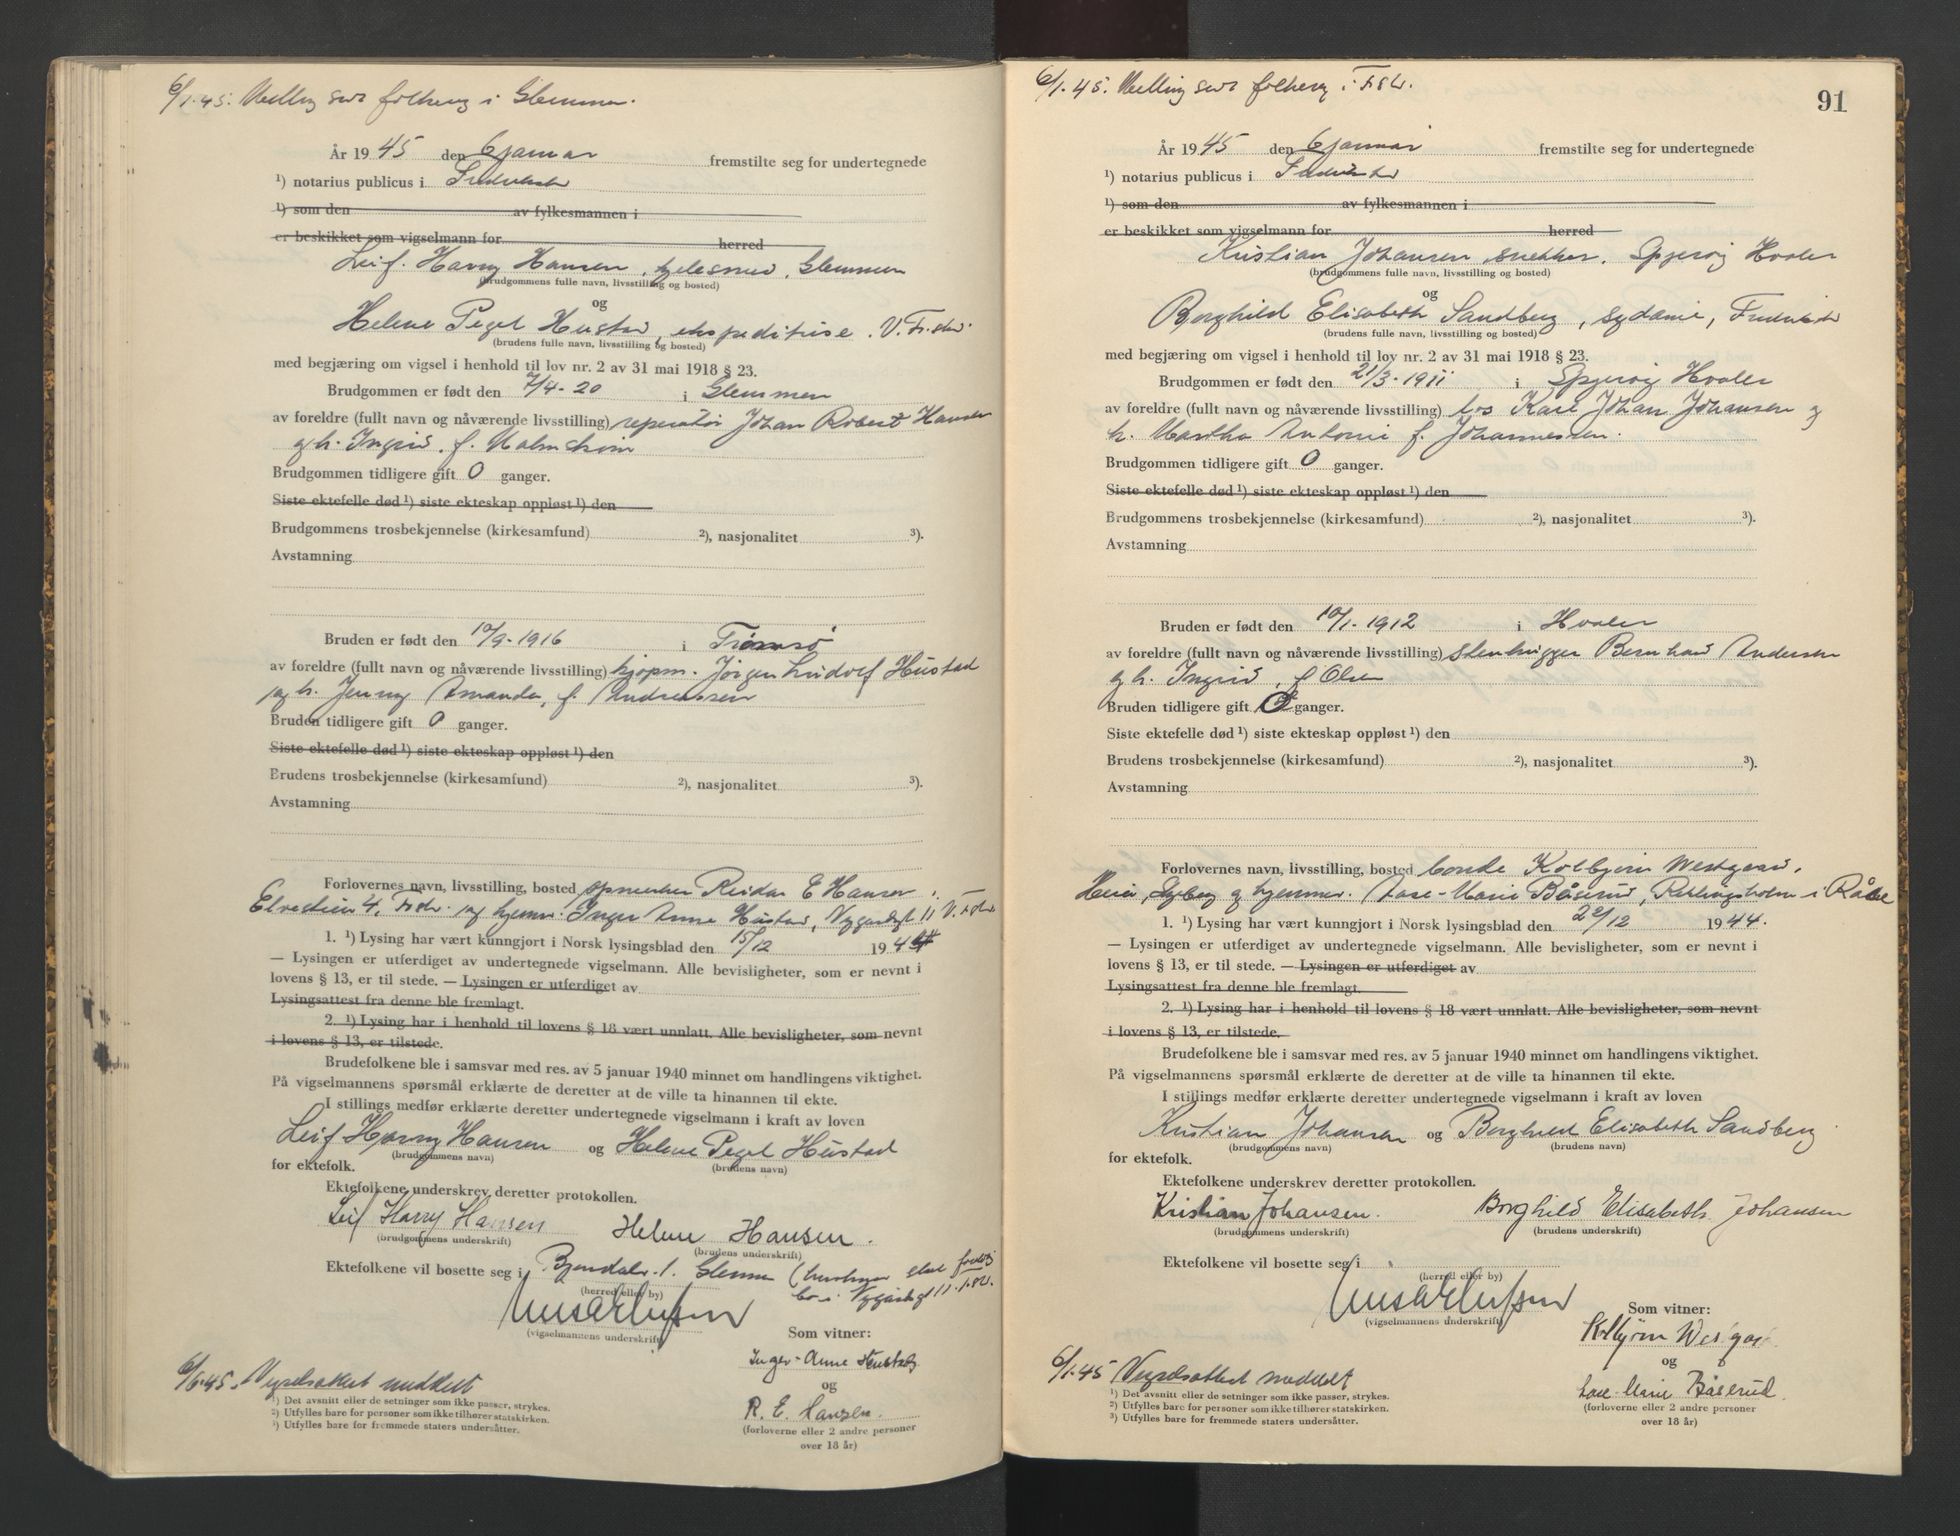 6/1.45. Melding folkereg i Glemmen.
År 1945 den 6 januar fremstilte seg for undertegnede
¹) notarius publicus i Fredrikstad
¹) som den av fylkesmannen i
er beskikket som vigselmann for herred
Leif Harry Hansen, Glemmen
(brudgommens fulle navn, livsstilling og bosted)
og
Helene Pegel Hustad, ekspeditrise. V. Fr.stad.
(brudens fulle navn, livsstilling og bosted)
med begjæring om vigsel i henhold til lov nr. 2 av 31 mai 1918 § 23.
Brudgommen er født den 7/4-20 i Glemmen
av foreldre (fullt navn og nåværende livsstilling) reperatør Johan Robert Hansen
og h. Ingrid, f. Malmstrøm
Brudgommen tidligere gift 0 ganger.
Siste ektefelle død ¹) siste ekteskap oppløst ¹) den
Brudgommens trosbekjennelse (kirkesamfund) ²), nasjonalitet ³).
Avstamning
Bruden er født den 10/9-1916 i Tromsø
av foreldre (fullt navn og nåværende livsstilling) kjøpm. Jørgen Ludolf Hustad
og h. Jenny Amanda, f. Andreassen
Bruden tidligere gift 0 ganger.
Siste ektefelle død ¹) siste ekteskap oppløst ¹) den
Brudens trosbekjennelse (kirkesamfund) ²), nasjonalitet ³).
Avstamning
Forlovernes navn, livsstilling, bosted Reidar E Hansen,
4, Fr.std. og hjemv. Inger Anne Hustad, Nygaardsgt 11 V. Fr.std
1. ¹) Lysing har vært kunngjort i Norsk lysingsblad den 15/12 1944
— Lysingen er utferdiget av undertegnede vigselmann. Alle bevisligheter, som er nevnt i
lovens § 13, er til stede. — Lysingen er utferdiget av
Lysingsattest fra denne ble fremlagt.
2. ¹) Lysing har i henhold til lovens § 18 vært unnlatt. Alle bevisligheter, som nevnt
i lovens § 13, er tilstede.
Brudefolkene ble i samsvar med res. av 5 januar 1940 minnet om handlingens viktighet.
På vigselmannens spørsmål erklærte de deretter at de ville ta hinannen til ekte.
I stillings medfør erklærte deretter undertegnede vigselmann i kraft av loven
Leif Harry Hansen og Helene Pegel Hustad
(brudgommens navn) (brudens navn)
for ektefolk.
Ektefolkene underskrev deretter protokollen.
Leif Harry Hansen Helene Hansen.
(brudgommens underskrift) (brudens underskrift)
Ektefolkene vil bosette seg i Glemmen
(herred eller by)
(vigselmannens underskrift)
Som vitner:
Inger-Anne Hustad
og
R. E. Hansen.
(forloverne eller 2 andre personer
over 18 år)
6/1.45. Vigselsattest meddelt
¹) Det avsnitt eller de setninger som ikke passer, strykes.
²) Utfylles bare for personer som ikke tilhører statskirken.
³) Utfylles bare for fremmede staters undersåtter.
91
6/1.45. Melding folkereg i Fr.std.
År 1945 den 6 januar fremstilte seg for undertegnede
¹) notarius publicus i Fredrikstad
¹) som den av fylkesmannen i
er beskikket som vigselmann for herred
Kristian Johansen, snekker, Spjerøy Hvaler
(brudgommens fulle navn, livsstilling og bosted)
og
Borghild Elisabeth Sandberg, sydame, Fredrikstad
(brudens fulle navn, livsstilling og bosted)
med begjæring om vigsel i henhold til lov nr. 2 av 31 mai 1918 § 23.
Brudgommen er født den 21/3-1911 i Spjerøy Hvaler
av foreldre (fullt navn og nåværende livsstilling) los Karl Johan Johansen og
h. Martha Antonie f. Johannesen.
Brudgommen tidligere gift 0 ganger.
Siste ektefelle død ¹) siste ekteskap oppløst ¹) den
Brudgommens trosbekjennelse (kirkesamfund) ²), nasjonalitet ³).
Avstamning
Bruden er født den 10/1-1912 i Hvaler
av foreldre (fullt navn og nåværende livsstilling) stenhugger Bernhard Andersen
og h. Ingrid, f Olsen
Bruden tidligere gift ganger.
Siste ektefelle død ¹) siste ekteskap oppløst ¹) den
Brudens trosbekjennelse (kirkesamfund) ²), nasjonalitet ³).
Avstamning
Forlovernes navn, livsstilling, bosted bonde Kolbjørn Westgaard,
og hjemmev. Aase-Marie Båserud, i Råde
1. ¹) Lysing har vært kunngjort i Norsk lysingsblad den 22/12 1944.
— Lysingen er utferdiget av undertegnede vigselmann. Alle bevisligheter, som er nevnt i
lovens § 13, er til stede. — Lysingen er utferdiget av
Lysingsattest fra denne ble fremlagt.
2. ¹) Lysing har i henhold til lovens § 18 vært unnlatt. Alle bevisligheter, som nevnt
i lovens § 13, er tilstede.
Brudefolkene ble i samsvar med res. av 5 januar 1940 minnet om handlingens viktighet.
På vigselmannens spørsmål erklærte de deretter at de ville ta hinannen til ekte.
I stillings medfør erklærte deretter undertegnede vigselmann i kraft av loven
Kristian Johansen og Borghild Elisabeth Sandberg
(brudgommens navn) (brudens navn)
for ektefolk.
Ektefolkene underskrev deretter protokollen.
Kristian Johansen. Borghild Elisabeth Johansen
(brudgommens underskrift) (brudens underskrift)
Ektefolkene vil bosette seg i
(herred eller by)
(vigselmannens underskrift)
Som vitner:
Kolbjørn Westgaard
og
Aase-Marie Båserud.
(forloverne eller 2 andre personer
over 18 år)
6/1.45 Vigselsattest meddelt
¹) Det avsnitt eller de setninger som ikke passer, strykes.
²) Utfylles bare for personer som ikke tilhører statskirken.
³) Utfylles bare for fremmede staters undersåtter.